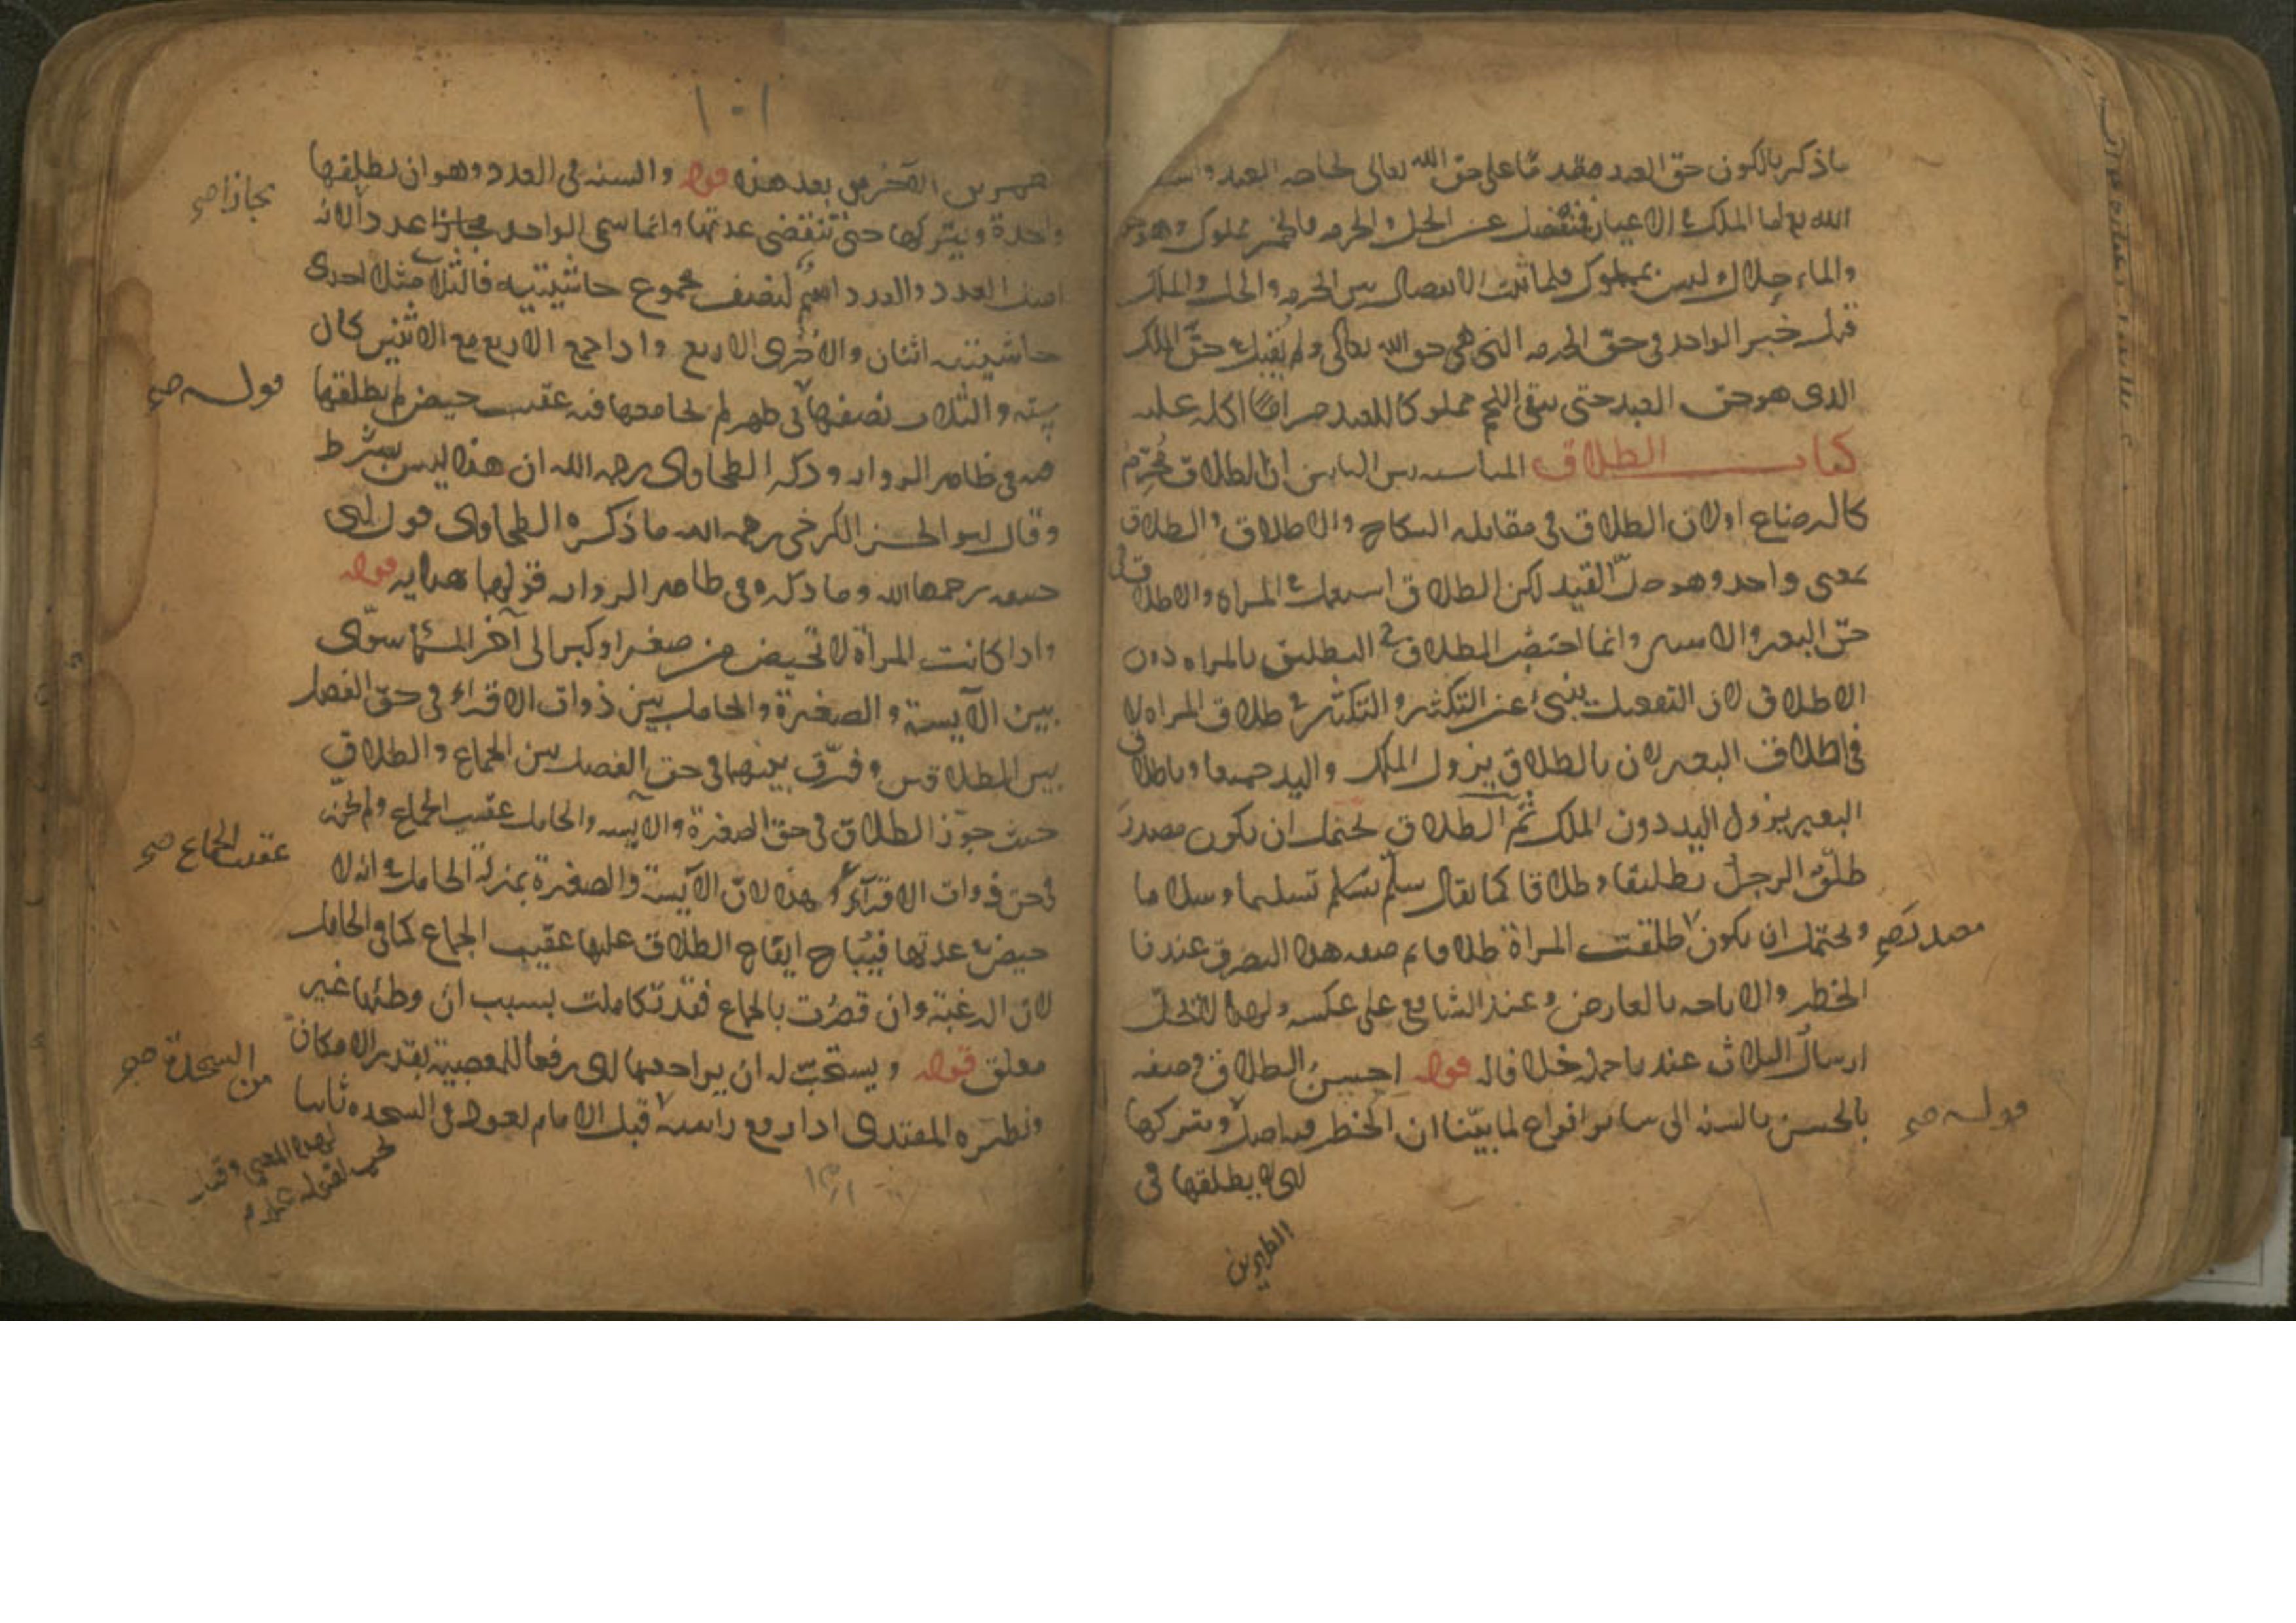 ماذكر بالكون حق العبد مقدما على حق الله تعالى لحاجه العبد
الله اما الملك في الاعيان فينفصل عن الحل والحرمه فالخمر مملوك وهو
والماء حلال وليس بمملوك فلما ثبت الانفصال بين الحرمه والحل والملك
قبل خبر الواحد في حق الحرمه التي هي حق الله تعالى ولم يقبل في حق الملك
الذى هو حق العبد حتى يبقى اللحم مملوكا للعبد حراما اكله عليه
كتاب الطلاق المناسبه بين البابين ان الطلاق محرم
كالرضاع اولان الطلاق في مقابله النكاح والاطلاق والطلاق
بمعنى واحد وهو حل القيد لكن الطلاق استعمل في المراه والاطلاق في
حق البعير والاسير وانما اختص الطلاق التطليق بالمراه دون
الاطلاق لان التفعيل ينبئ عن التكثير والتكثير في طلاق المراه لا
في اطلاق البعير لان بالطلاق يزول الملك واليد جميعا وباطلاق
البعير يزول اليد دون الملك ثم الطلاق يحتمل ان يكون مصدر
طلق الرجل تطليقا وطلاقا كما يقال سلم يسلم تسليما وسلاما
ويحتمل ان يكون طلقت المراة طلاقا ثم صفه هذا التصرف عندنا
مصدر صح
الخطر والاباحه بالعارض وعند الشافعي على عكسه ولهذا
ارسال الثلاث عنده باحمله خلافا له قوله احسن الطلاق وصفه
بالحسن بالسنه الى سائر انواع لما بينا ان الخطر فيه اصل ويتركها
قوله صح
اى لا يطلقها في
الطهرين
١٠١
طهرين الاخرين بعد هذه قوله والسنه في العدد وهو ان يطلقها
واحدة ويتركها حتى تنقضى عدتها وانما سمى الواحد مجازا عددا لانه
مجازا صح
اصل العدد والعدد اسم لنصف مجموع حاشيتيه فالثلاث مثلا احدى
حاشيتيه اثنان والاخرى الاربع واذا جمع الاربع مع الاثنين كان
سته والثلاث نصفها في طهر لم يجامعها فيه عقيب حيض لم يطلقها
قوله صح
فيه في ظاهر الروايه وذكر الطحاوى رحمه الله ان هذا ليس بشرط
وقال ابو الحسن الكرخى رحمه الله ما ذكره الطحاوى قول ابى
حنيفه رحمهما الله وما ذكره في ظاهر الروايه قولهما هدايه قوله
واذا كانت المرأة لا تحيض من صغر او كبر الى آخر المسئلة سوى
بين الآيسة والصغيرة والحامل بين ذوات الاقراء في حق الفصل
بين الطلاقين وفرق بينهما في حق الفصل بين الجماع والطلاق
حيث جوز الطلاق في حق الصغيرة والآيسه والحامل عقيب الجماع ولم يجز
في حق ذوات الاقرآء وهذا لان الآيسة والصغيرة بمنزلة الحامل في انه لا
عقيب الجماع صح
حيض في عدتها فيباح ايقاع الطلاق عليها عقيب الجماع كما في الحامل
لان الرغبة وان قصرت بالجماع فقد تكاملت بسبب ان وطئها غير
معلق قوله ويستحب له ان يراجعها اى رفعا للمعصية بقدر الامكان
ونظيره المقتدى اذا رفع راسه قبل الامام يعود في السجده ثانيا
من السجدة صح
لهذا المعنى وقيل
يجب لقوله عم